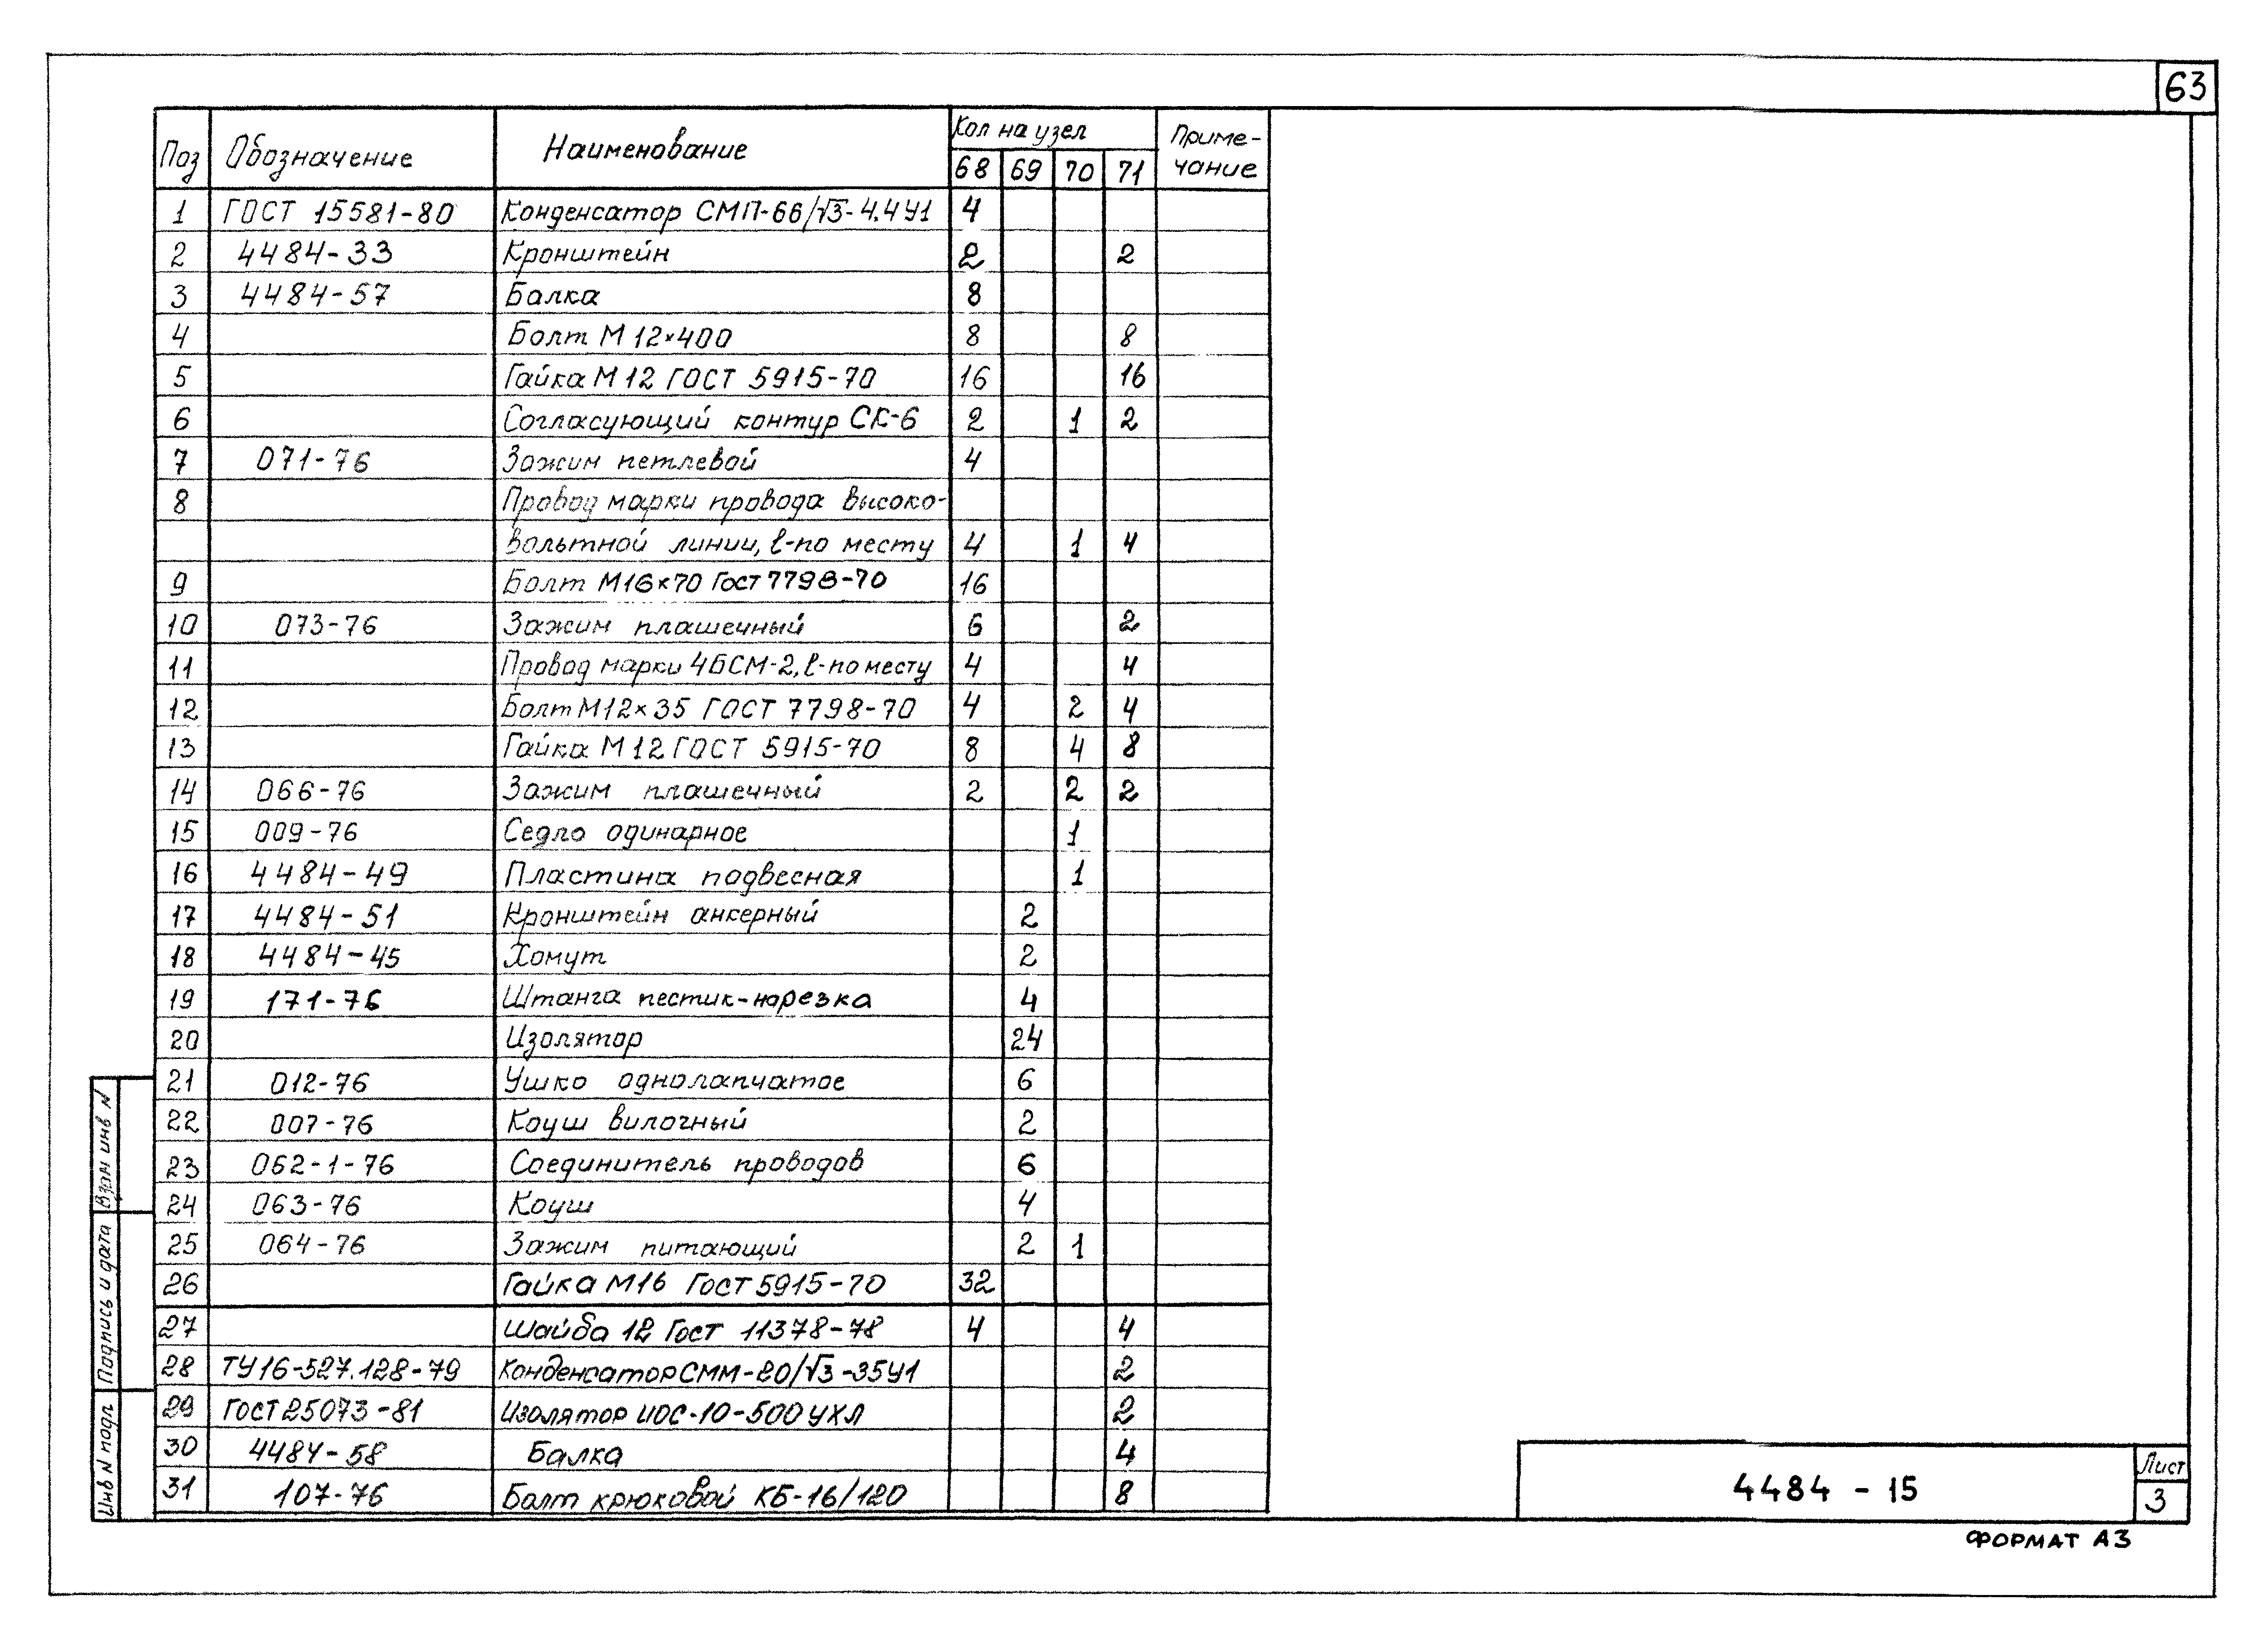 63
Поз Обозначение Наименование Кол на узел Приме-
68 69 70 71 чание
1 ГОСТ 15581-80 Конденсатор СМП-66/√3-4.4У1 4
2 4484-33 Кронштейн 2 2
3 4484-57 Балка 8
4 Болт М12×400 8 8
5 Гайка М12 ГОСТ 5915-70 16 16
6 Согласующий контур СК-6 2 1 2
7 071-76 Зажим петлевой 4
8 Провод марки провода высоко-
вольтной линии, l-по месту 4 1 4
9 Болт М16×70 Гост 7798-70 16
10 073-76 Зажим плашечный 6 2
11 Провод марки 4БСМ-2, l-по месту 4 4
12 Болт М12×35 ГОСТ 7798-70 4 2 4
13 Гайка М12 ГОСТ 5915-70 8 4 8
14 066-76 Зажим плашечный 2 2 2
15 009-76 Седло одинарное 1
16 4484-49 Пластина подвесная 1
17 4484-51 Кронштейн анкерный 2
18 4484-45 Хомут 2
19 171-76 Штанга пестик-нарезка 4
20 Изолятор 24
21 012-76 Ушко однолапчатое 6
22 007-76 Коуш вилочный 2
23 062-1-76 Соединитель проводов 6
24 063-76 Коуш 4
25 064-76 Зажим питающий 2 1
26 Гайка М16 Гост 5915-70 32
27 Шайба 12 Гост 11378-78 4 4
28 ТУ16-527.128-79 Конденсатор СММ-20/√3-35У1 2
29 Гост 25073-81 Изолятор ИОС-10-500 УХЛ 2
30 4484-58 Балка 4
31 107-76 Болт крюковой КБ-16/120 8
Взам инв N
Подпись и дата
Инв N подл
4484 - 15
Лист
3
ФОРМАТ А3